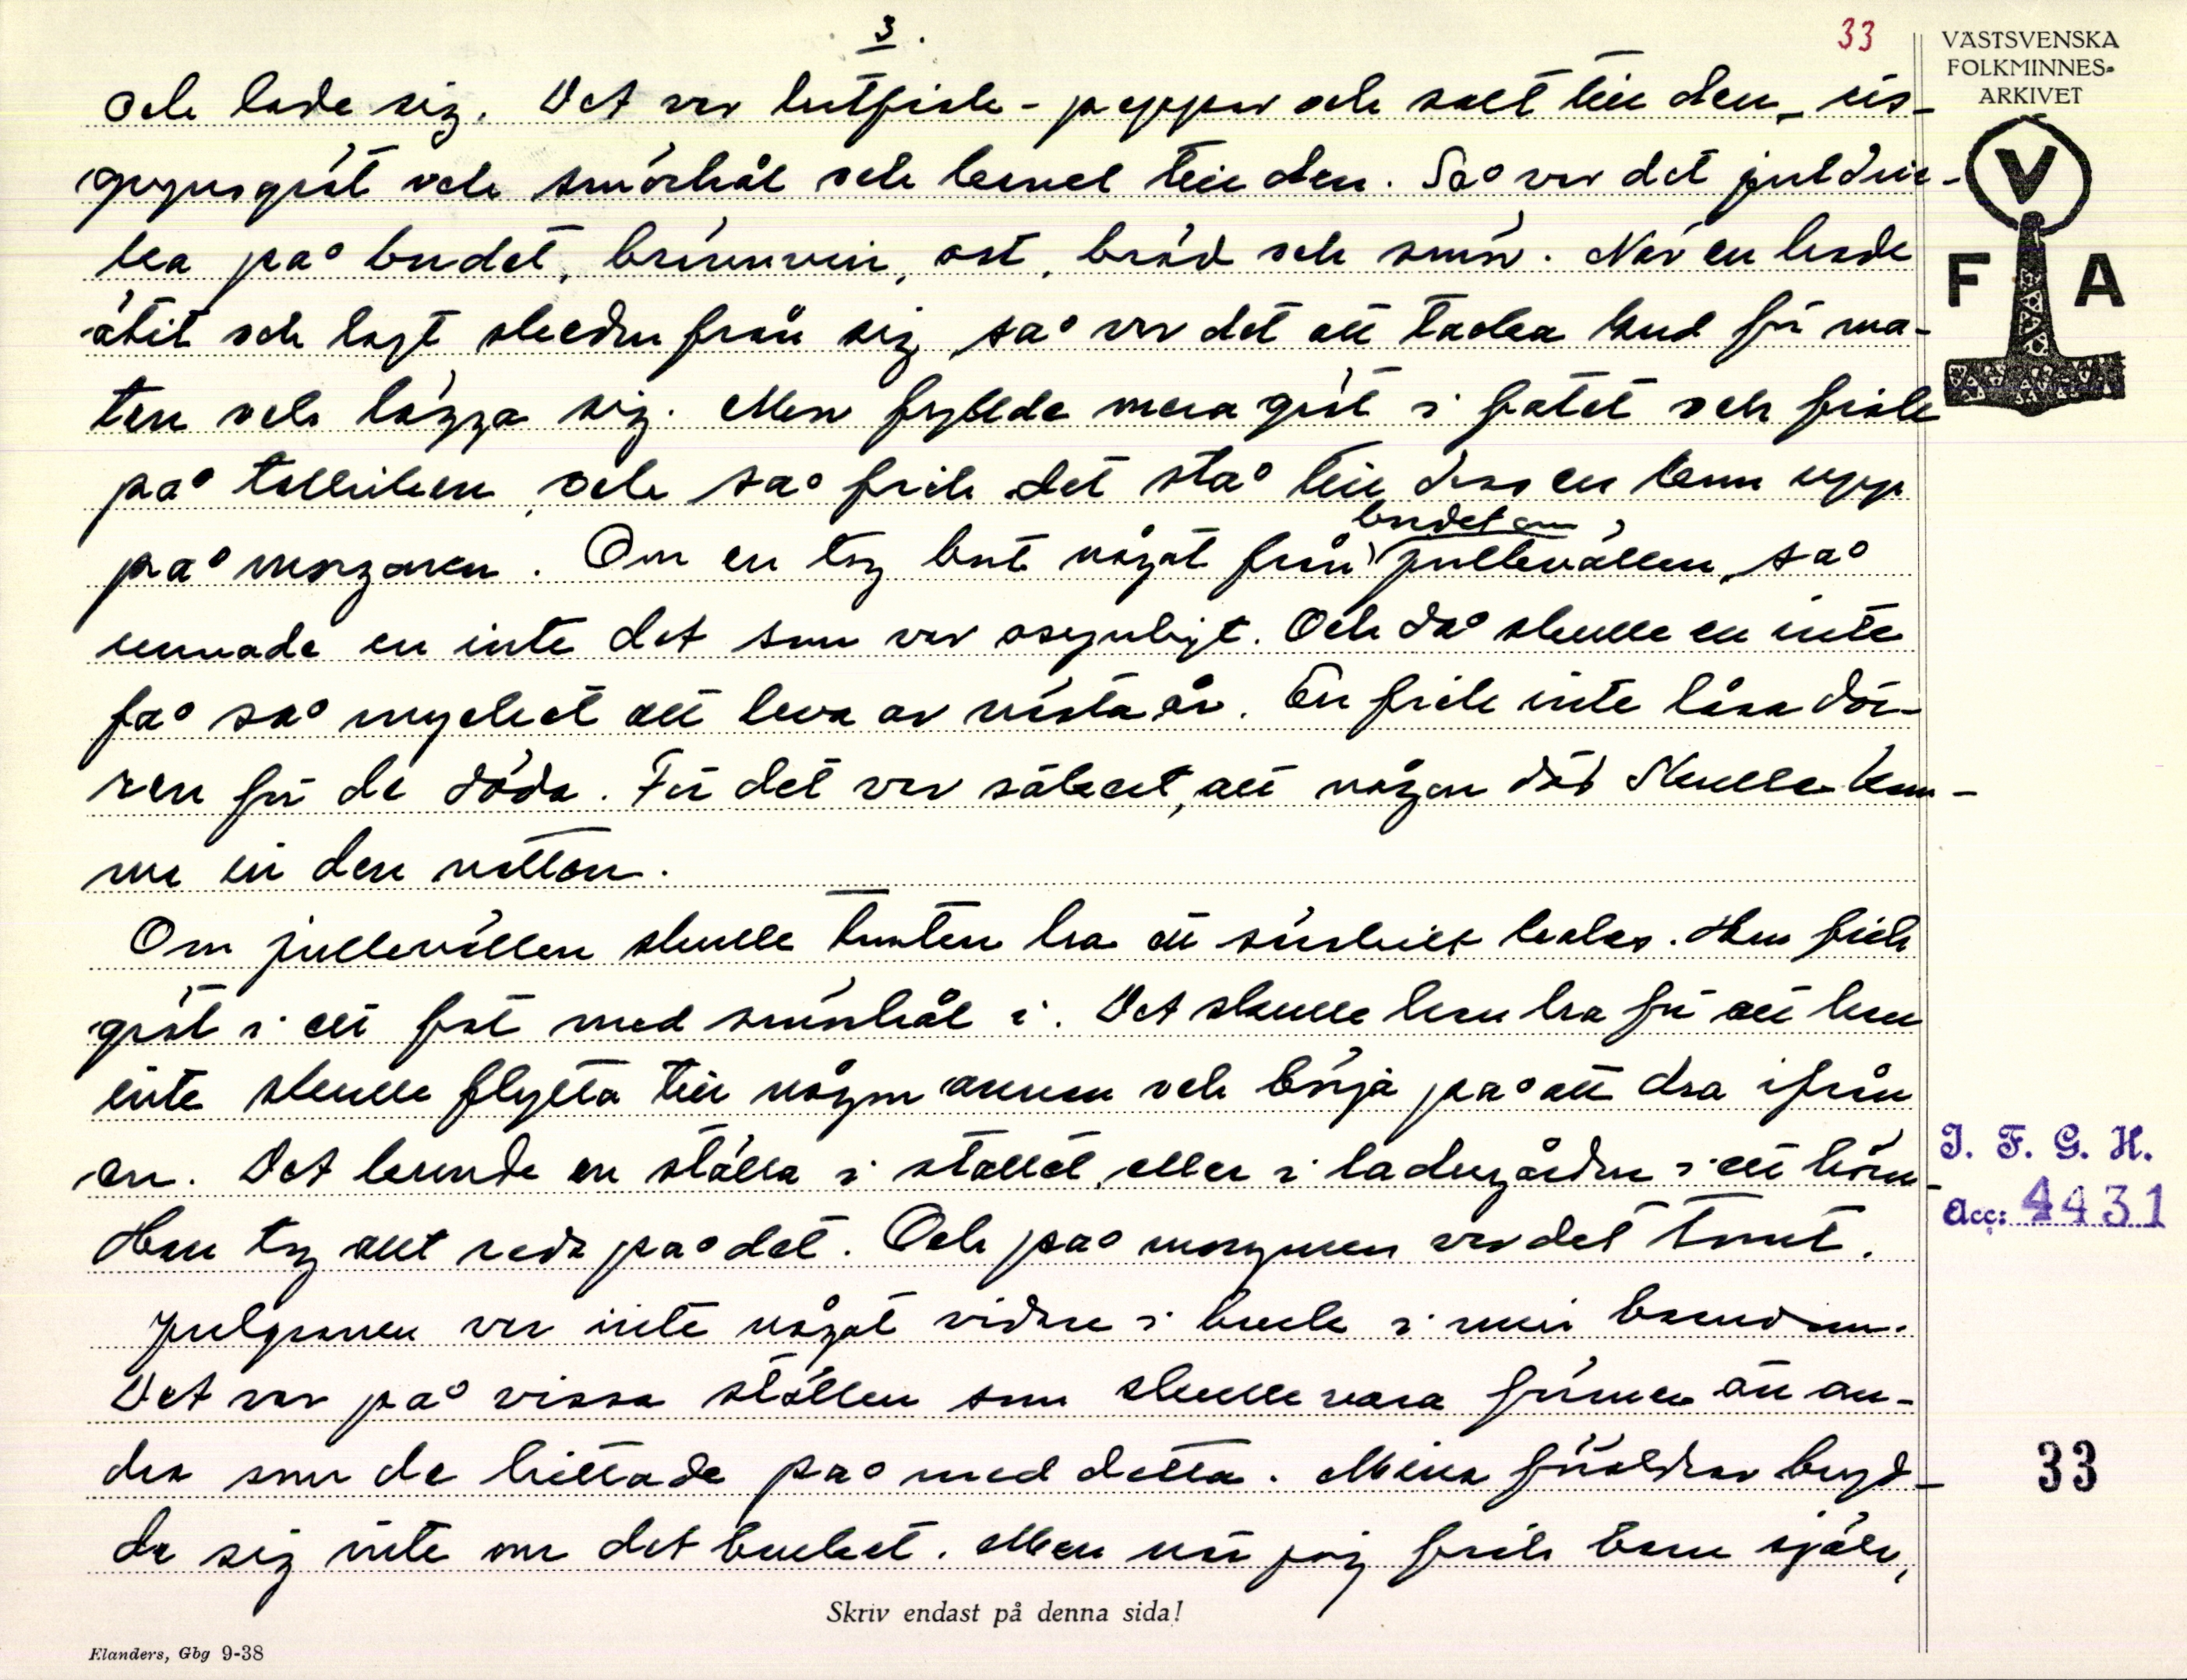 3.
33
VÄSTSVENSKA
FOLKMINNES-
ARKIVET
V
F A
och lade sig. Det var lutfisk - peppar och salt till den, ris-
grynsgröt och smörhål och kanel till den. Så var det juldric-
ka på bordet, brännvin, ost, bröd och smör. När en hade
ätit och lagt skeden från sig så var det att tacka Gud för ma-
ten och lägga sig. Men fyllde mera gröt i fatet och fisk
på talliken, och så fick det stå till dess en kom upp
på morgonen. Om en tog bort något från bordet om jullekvällen, så
unnade en inte det som var osynligt. Och då skulle en inte
få så mycket att leva av nästa år. En fick inte låsa dör-
ren för de döda. För det var säkert, att någon död skulle kom-
ma in den natten.
Om jullekvällen skulle tomten ha ett särskilt kalas. Han fick
gröt i ett fat med smörhål i. Det skulle han ha för att han
inte skulle flytta till någon annan och börja på att dra ifrån
en. Det kunde en ställa i stallet, eller i ladugården i ett hörn.
Han tog allt reda på det. Och på morgonen var det tomt.
Julgranen var inte något vidare i bruk i min barndom.
Det var på vissa ställen som skulle vara förmer än an-
dra som de hittade på med detta. Mina föräldrar bryd-
de sig inte om det bruket. Men när jag fick barn själv,
I. F. G. H.
Acc: 4431
33
Skriv endast på denna sida!
Elanders, Gbg 9-38